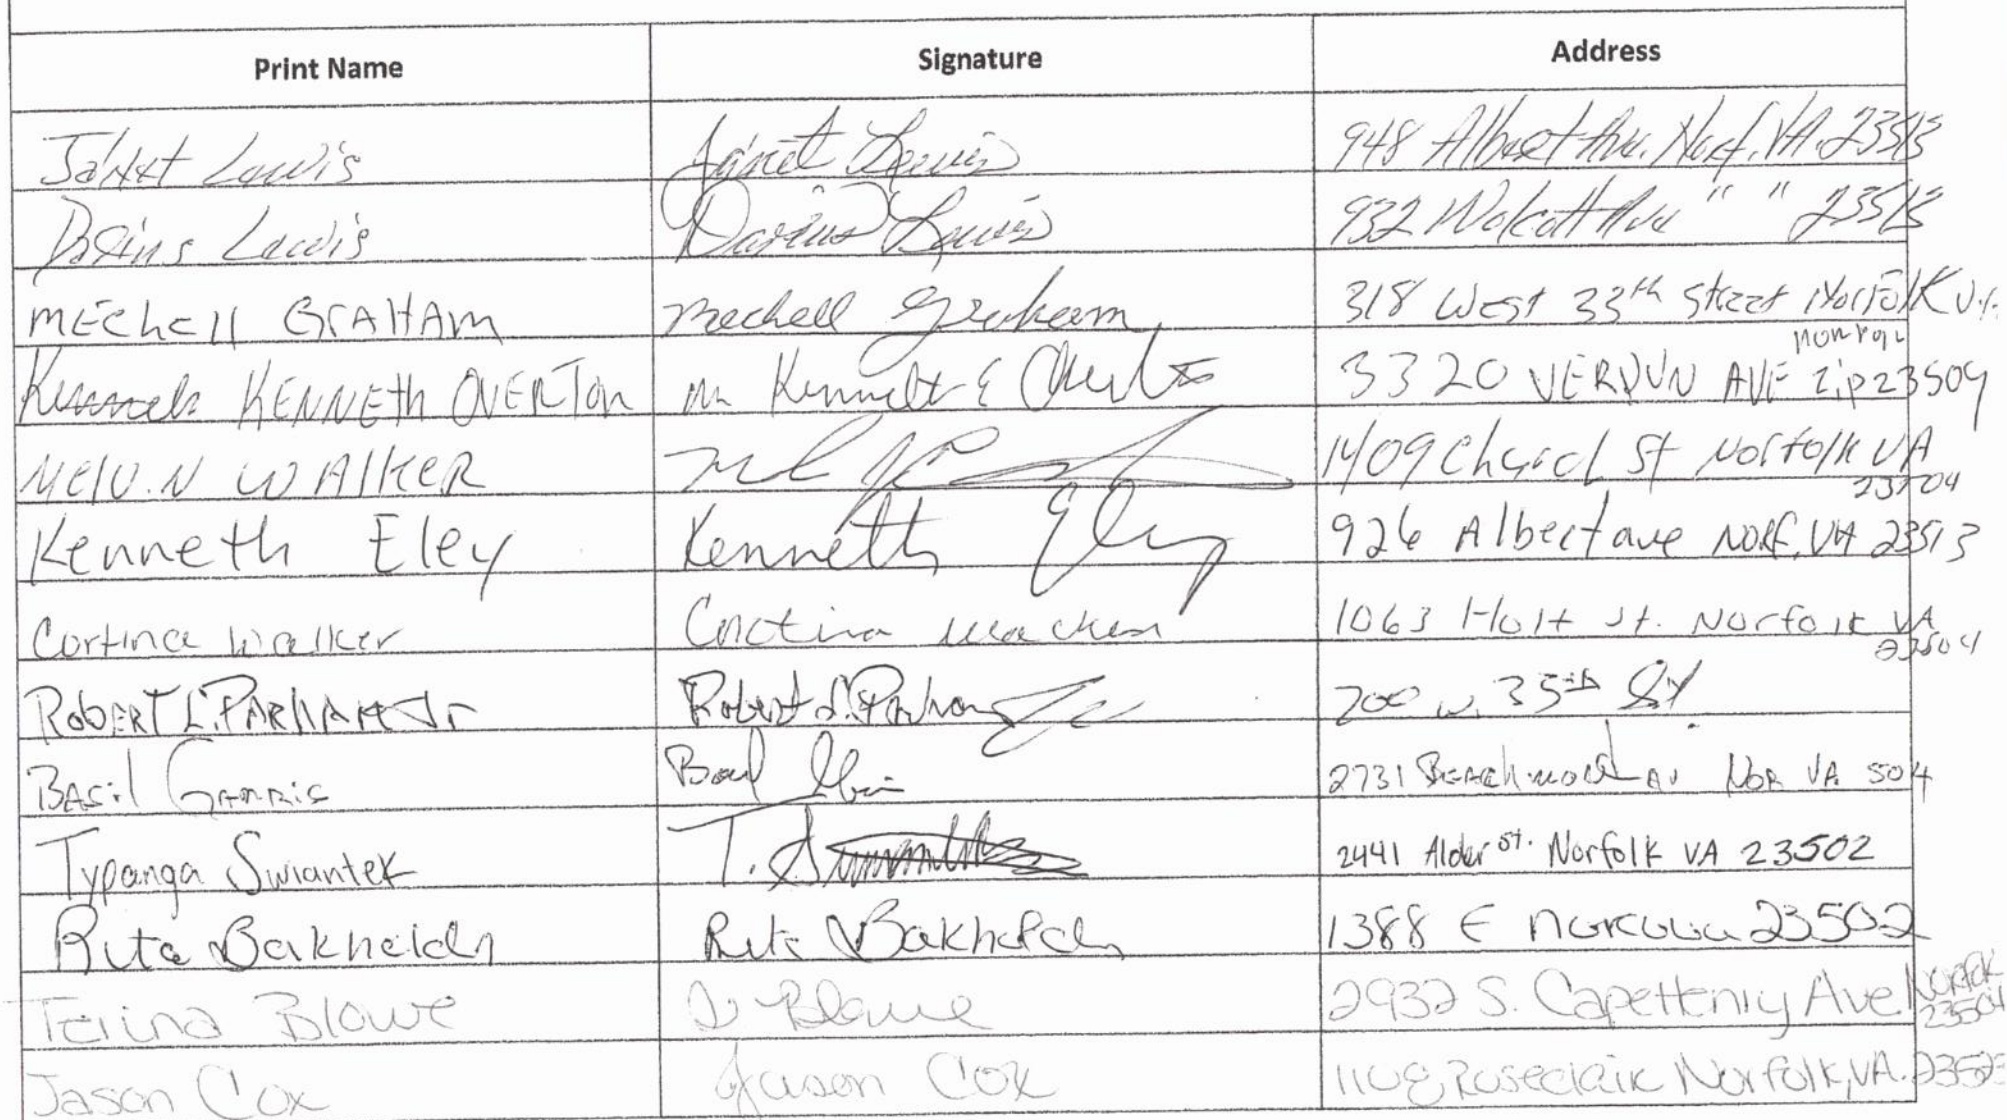 Print Name Signature Address
Janet Lewis Janet Lewis 948 Albert Ave. Norf. VA. 23513
Darius Lewis Darius Lewis 932 Walcott Ave " " 23513
MEChEll GRAHAM Mechell Graham 318 West 33th Street Norfolk VA
KENNETh OVERTON Kenneth E 3320 VERDUN AVE Zip 23509
MElViN WAlKER 1409 Church St Norfolk VA
23504
Kenneth Eley Kenneth Eley 926 Albert ave NORF, VA 23513
Cortina Walker Cortina Walker 1063 Holt St. Norfolk VA
23504
ROBERT L. PARHAM Jr Robert L. Parham Jr 700 w. 35th St.
BASil GARRis Basil 2731 Beachmont AV NOR VA 504
Typanga Swiantek T. 2441 Alder St. Norfolk VA 23502
Rita Bakheidy Rita Bakheidy 1388 E 23502
Terina Blowe Blowe 2932 S. Cape Henry Ave. Norfolk
23504
Jason Cox Jason Cox 1108 Roseclair Norfolk, VA. 23523